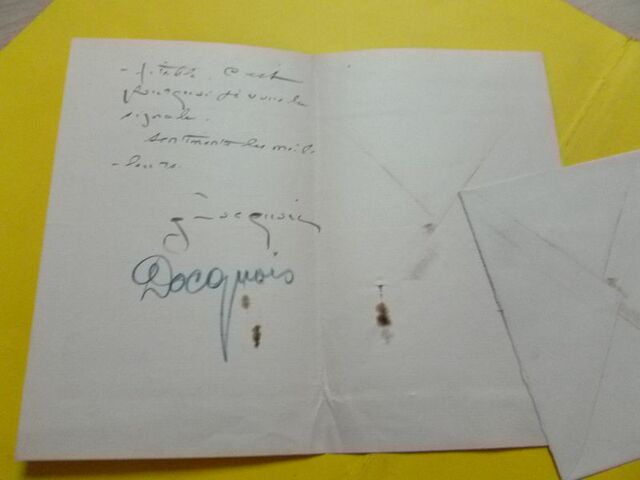 - fitable. C'est
pourquoi je vous le
signale.
Sentiments les meil-
- leurs.
G Docquois
Docquois